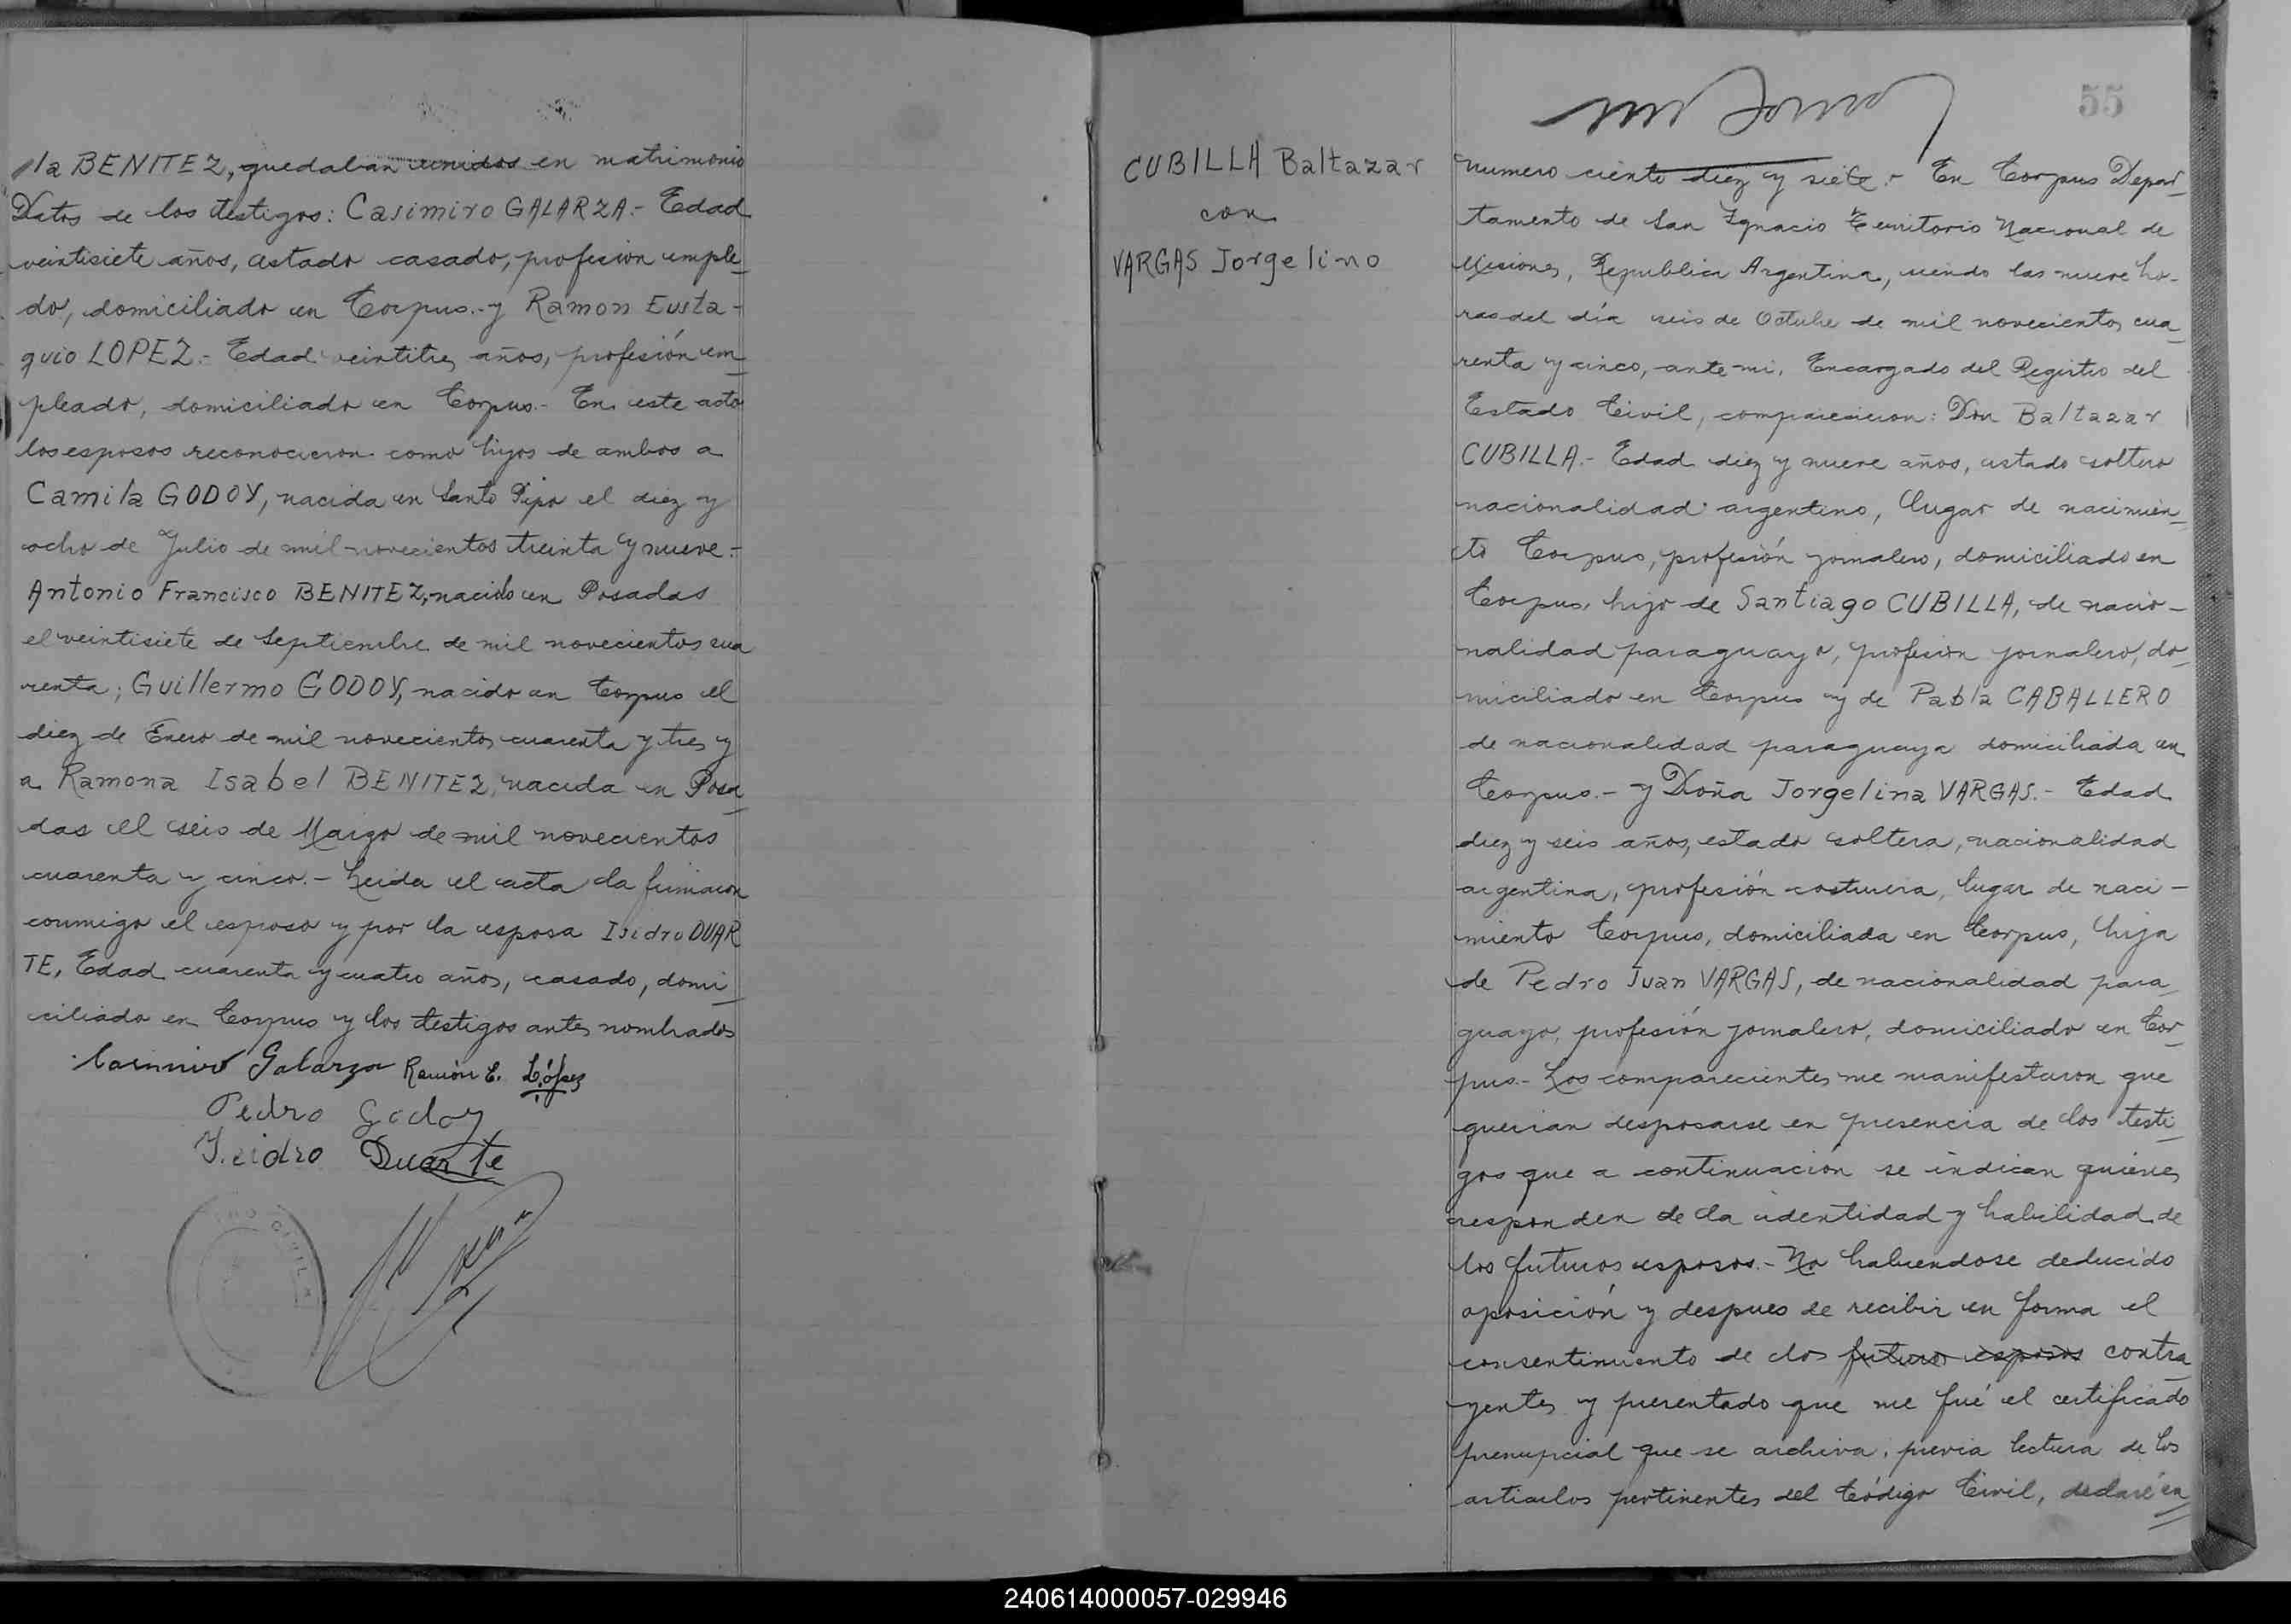 la BENITEZ, quedaban unidos en matrimonio
Datos de los testigos: Casimiro GALARZA.- Edad
veintisiete años, estado casado, profesion emple_
do, domiciliado en Corpus.- y Ramon Eusta-
quio LOPEZ.- Edad veintitres años, profesión em_
pleado, domiciliado en Corpus.- En este acto
los esposos reconocieron como hijos de ambos a
Camila GODOY, nacida en Santo Pipo el diez y
ocho de Julio de mil novecientos treinta y nueve.-
Antonio Francisco BENITEZ, nacido en Posadas
el veintisiete de Septiembre de mil novecientos cua
renta; Guillermo GODOY, nacido en Corpus el
diez de Enero de mil novecientos cuarenta y tres y
a Ramona Isabel BENITEZ, nacida en Posa_
das el seis de Marzo de mil novecientos
cuarenta y cinco.- Leida el acta la firmaron
conmigo el esposo y por la esposa Isidro DUAR
TE, Edad cuarenta y cuatro años, casado, domi_
ciliado en Corpus y los testigos antes nombrados
Casimiro Galarza Ramón E. López
Pedro Godoy
Isidro Duarte
CIVIL
CUBILLA Baltazar
con
VARGAS Jorgelino
55
Numero ciento diez y siete.- En Corpus Depar_
tamento de San Ignacio Territorio Nacional de
Misiones, Republica Argentina, siendo las nueve ho-
ras del día seis de Octubre de mil novecientos cua_
renta y cinco, ante mi, Encargado del Registro del
Estado Civil, comparecieron: Don Baltazar
CUBILLA.- Edad diez y nueve años, estado soltero
nacionalidad argentino, lugar de nacimien_
to Corpus, profesión jornalero, domiciliado en
Corpus, hijo de Santiago CUBILLA, de nacio-
nalidad paraguayo, profesion jornalero, do_
miciliado en Corpus y de Pabla CABALLERO
de nacionalidad paraguaya domiciliada en
Corpus.- y Doña Jorgelina VARGAS.- Edad
diez y seis años, estado soltera, nacionalidad
argentina, profesión costurera, lugar de naci-
miento Corpus, domiciliada en Corpus, hija
de Pedro Juan VARGAS, de nacionalidad para_
guayo, profesión jornalero, domiciliado en Cor_
pus.- Los comparecientes me manifestaron que
querian desposarse en presencia de los testi_
gos que a continuación se indican quienes
responden de la identidad y habilidad de
los futuros esposos.- No habiendose deducido
oposición y despues de recibir en forma el
consentimiento de los futuros esposos contra_
yentes y presentado que me fué el certificado
prenupcial que se archiva, previa lectura de los
articulos pertinentes del Código Civil, declaré en
240614000057-029946